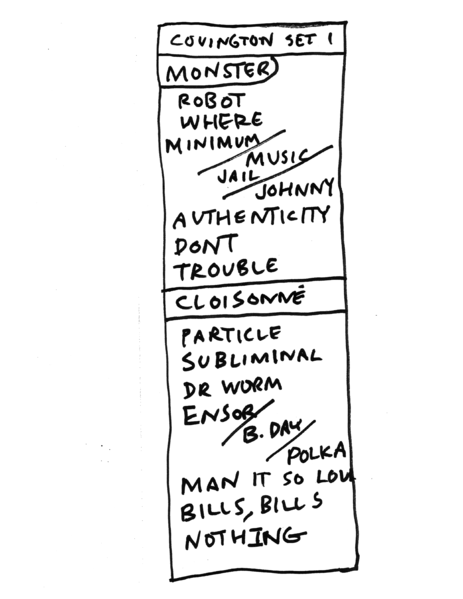 COVINGTON SET 1
MONSTER
ROBOT
WHERE
MINIMUM
MUSIC
JAIL
JOHNNY
AUTHENTICITY
DONT
TROUBLE
CLOISONNÉ
PARTICLE
SUBLIMINAL
DR WORM
ENSOR
B. DAY
POLKA
MAN IT SO LOU
BILLS, BILLS
NOTHING